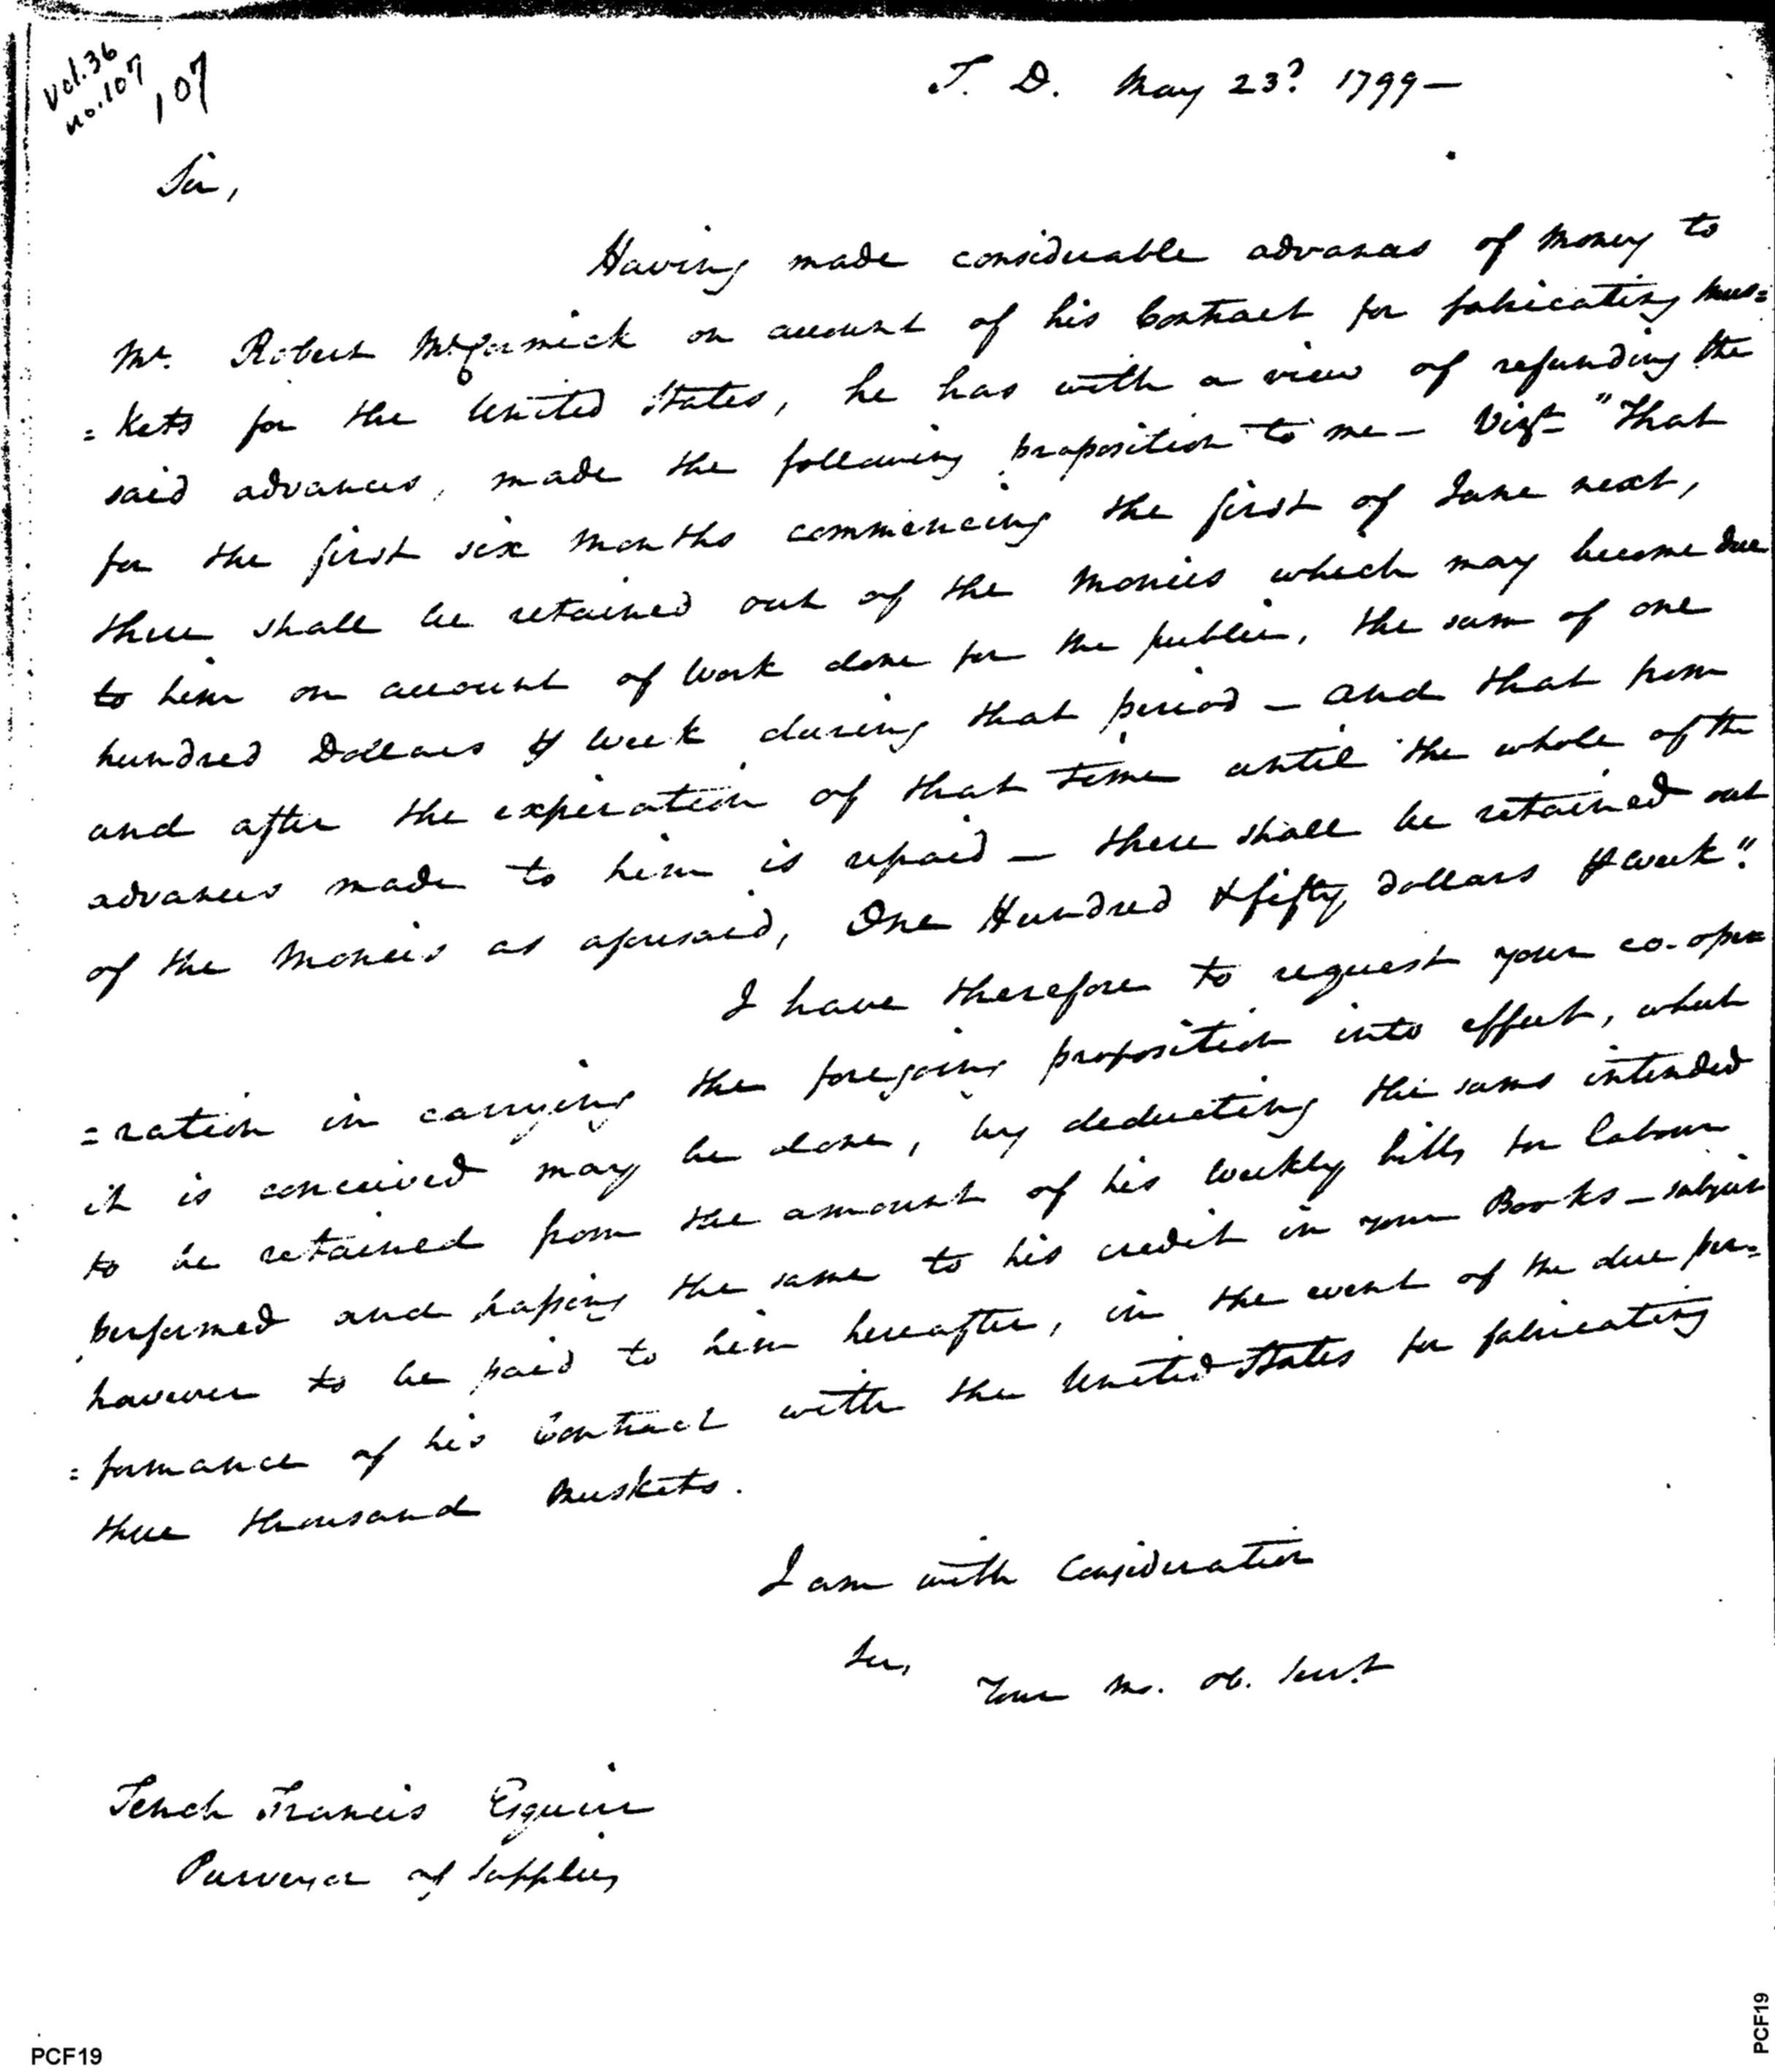 Vol. 36
no. 107
107
T. D. May 23d 1799—
Sir,
Having made considerable advances of Money to
Mr. Robert McCormick on account of his Contract for fabricating Mus=
=kets for the United States, he has with a view of refunding the
said advances, made the following proposition to me — Vizt. "That
for the first six Months commencing the first of June next,
there shall be retained out of the Monies which may become due
to him on account of Work done for the public, the sum of one
hundred Dollars ⅌ Week during that period — and that from
and after the expiration of that time until the whole of the
advances made to him is repaid — there shall be retained out
of the Monies as aforesaid, One Hundred & fifty dollars ⅌ Week".
I have therefore to request your co-ope
=ration in carrying the foregoing proposition into effect, which
it is conceived may be done, by deducting the sums intended
to be retained from the amount of his Weekly bills for labour
performed and passing the same to his credit in your Books — subject
however to be paid to him hereafter, in the event of the due per=
=formance of his Contract with the United States for fabricating
three thousand Muskets.
I am with Consideration
Sir,
Your Mo. Ob. Servt
Tench Francis Esquire
Purveyor of Supplies
PCF19
PCF19